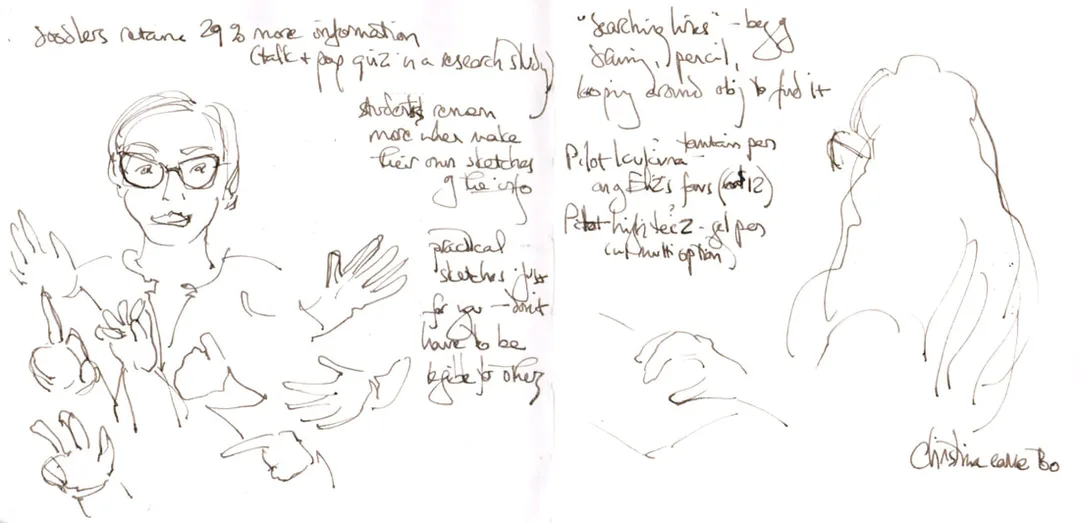 doodlers retaine 29% more information
(talk + pop quiz in a research study)
students remem
more when make
their own sketches
of the info
practical
sketches: just
for you — don't
have to be
legible to others
"Searching lines" - beg
drawing, pencil,
looping around obj to find it
Pilot fountain pen
ang Eliz's favs ($12)
Pilot hi-tec 2 - gel pen
(w/ multi option)
Christina